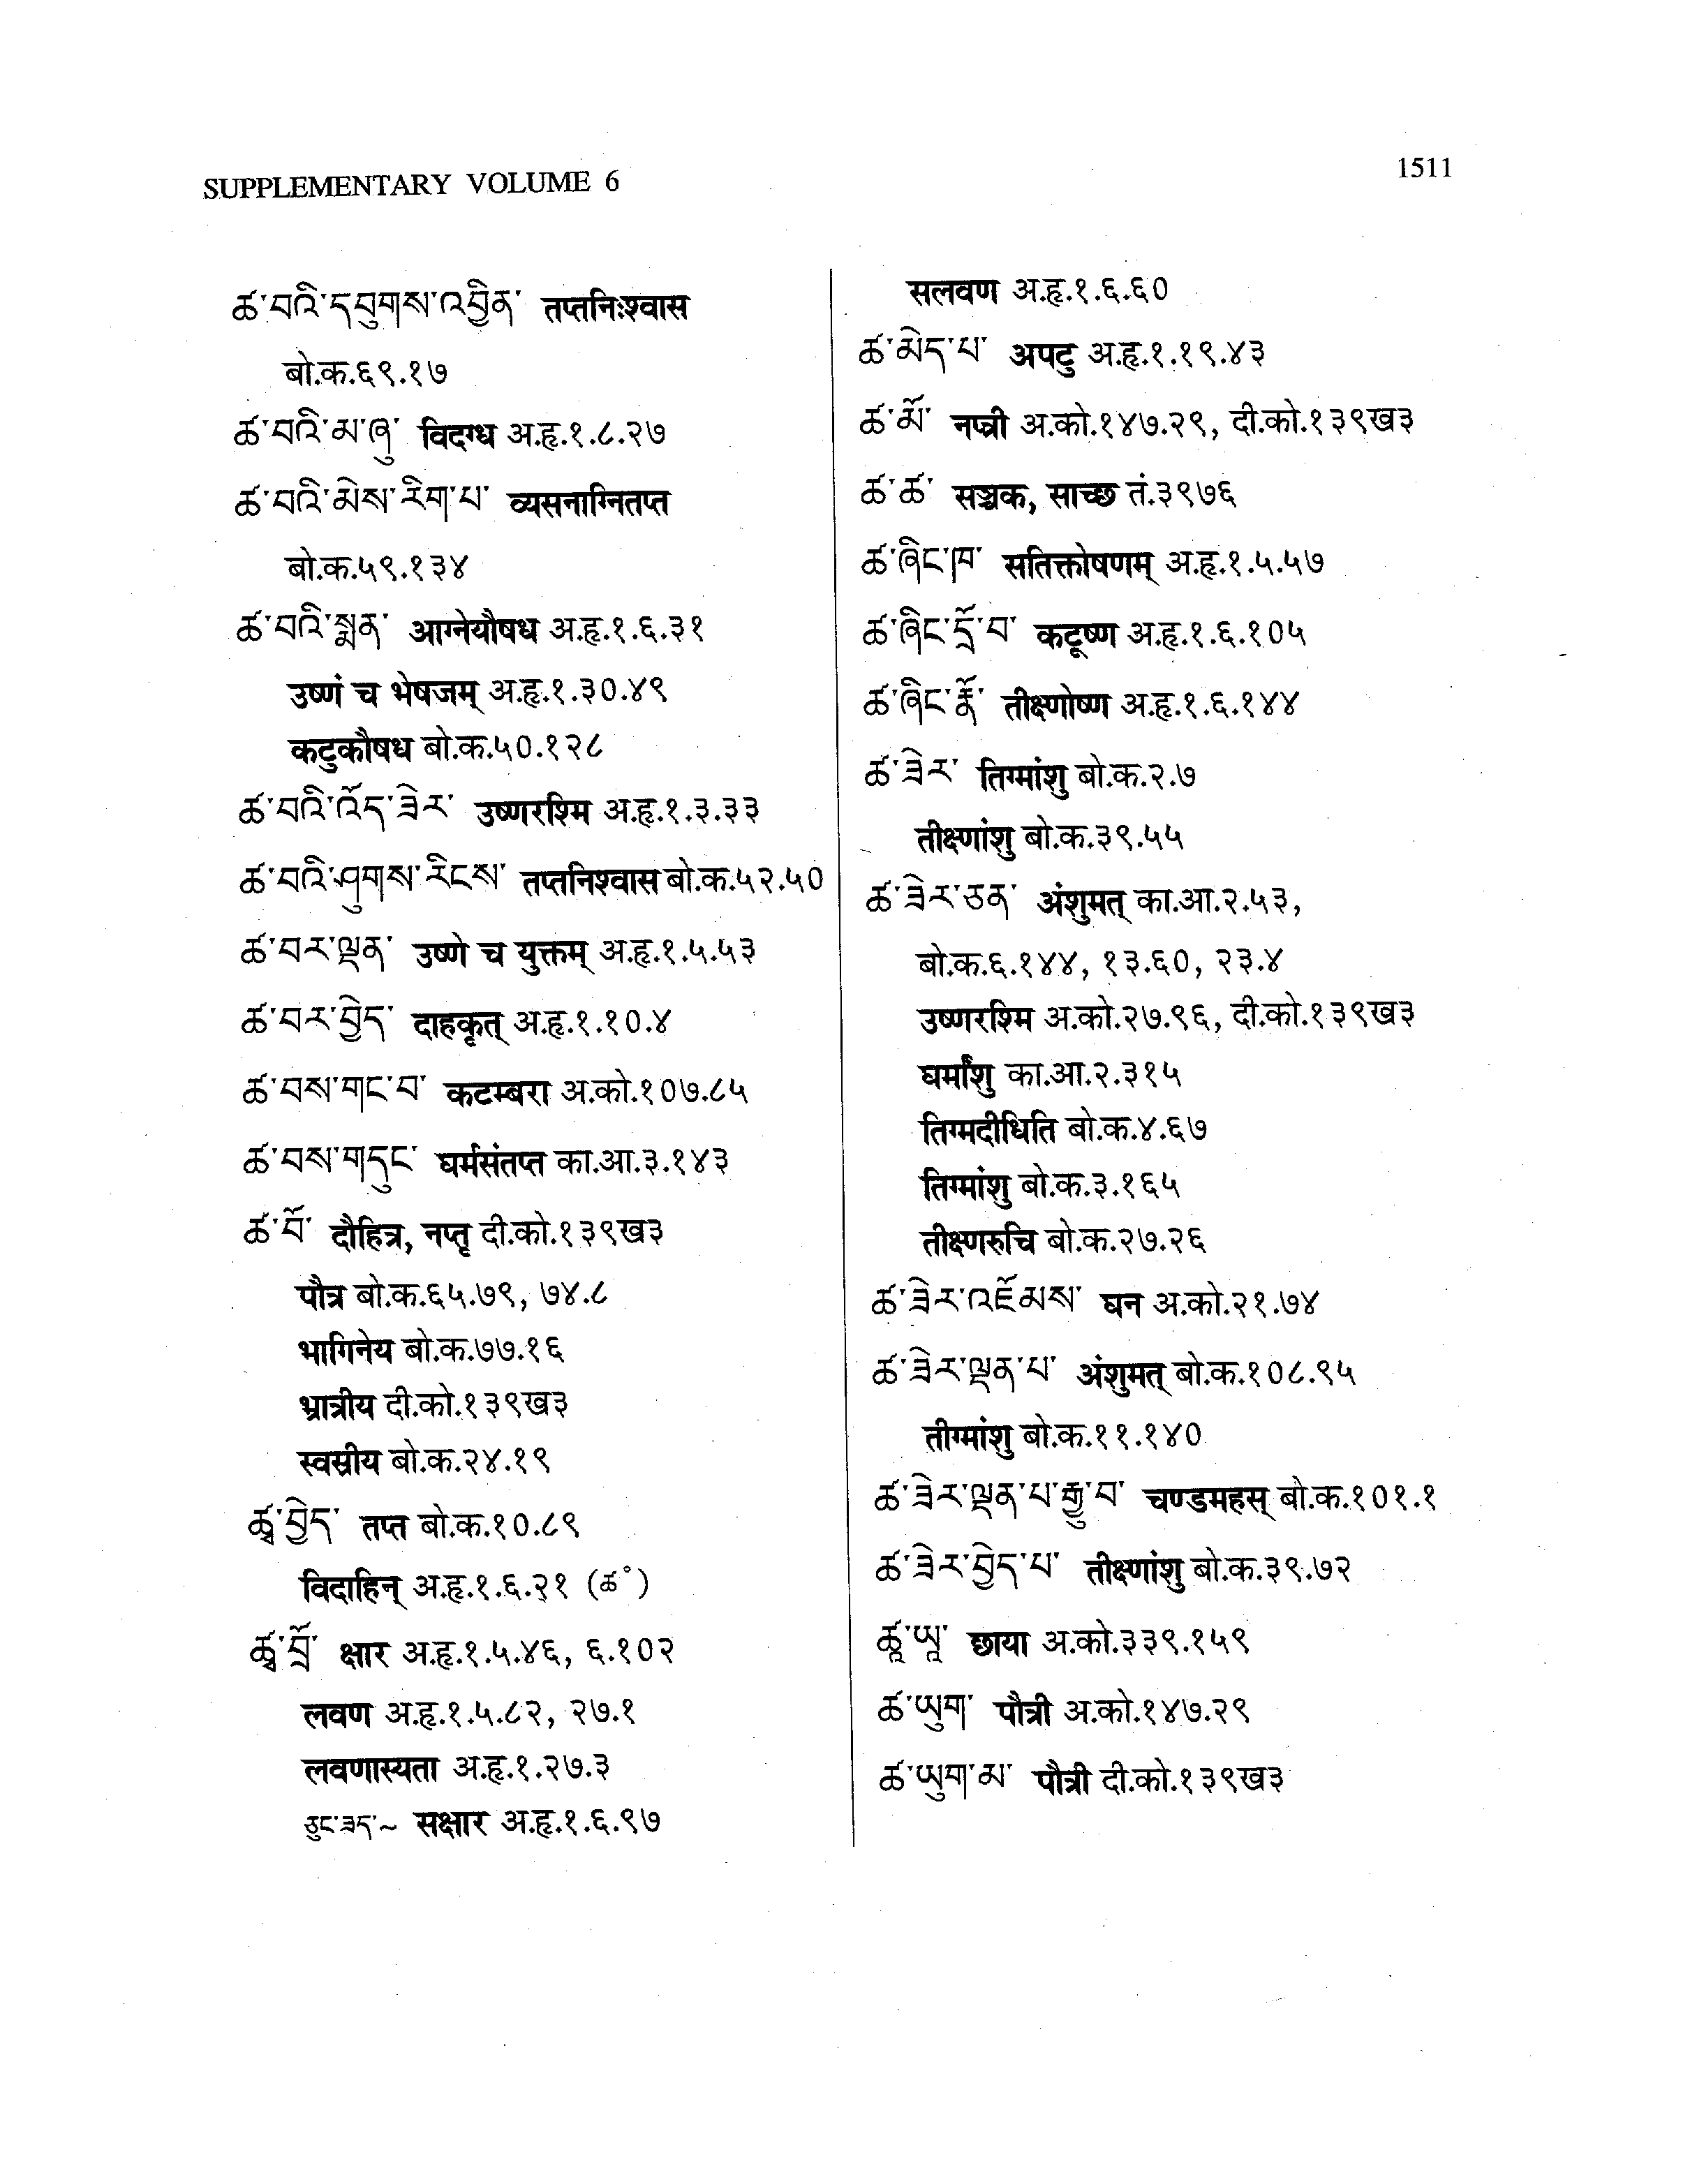 SUPPLEMENTARY VOLUME 6
1511
ཚ་བའི་དབུགས་འབྱིན་ तप्तनिःश्वास
बो.क.६९.१७
ཚ་བའི་མ་ཞུ་ विदग्ध अ.हृ.१.८.२७
ཚ་བའི་མེས་རེག་པ་ व्यसनाग्नितप्त
बो.क.५९.१३४
ཚ་བའི་སྨན་ आग्नेयौषध अ.हृ.१.६.३१
उष्णं च भेषजम् अ.हृ.१.३०.४९
कटुकौषध बो.क.५०.१२८
ཚ་བའི་འོད་ཟེར་ उष्णरश्मि अ.हृ.१.३.३३
ཚ་བའི་ཤུགས་རིངས་ तप्तनिश्वास बो.क.५२.५०
ཚ་བར་ལྡན་ उष्णे च युक्तम् अ.हृ.१.५.५३
ཚ་བར་བྱེད་ दाहकृत् अ.हृ.१.१०.४
ཚ་བས་གང་བ་ कटम्बरा अ.को.१०७.८५
ཚ་བས་གདུང་ घर्मसंतप्त का.आ.३.१४३
ཚ་བོ་ दौहित्र, नप्तृ दी.को.१३९ख३
पौत्र बो.क.६५.७९, ७४.८
भागिनेय बो.क.७७.१६
भ्रात्रीय दी.को.१३९ख३
स्वस्रीय बो.क.२४.१९
ཚྭ་བྱེད་ तप्त बो.क.१०.८९
विदाहिन् अ.हृ.१.६.२१ (ཚ°)
ཚྭ་བྲོ་ क्षार अ.हृ.१.५.४६, ६.१०२
लवण अ.हृ.१.५.८२, २७.१
लवणास्यता अ.हृ.१.२७.३
ཅུང་ཟད་~ सक्षार अ.हृ.१.६.९७
सलवण अ.हृ.१.६.६०
ཚ་མེད་པ་ अपटु अ.हृ.१.१९.४३
ཚ་མོ་ नप्त्री अ.को.१४७.२९, दी.को.१३९ख३
ཚ་ཚ་ सञ्चक, साच्छ तं.३९७६
ཚ་ཞིང་ཁ་ सतिक्तोषणम् अ.हृ.१.५.५७
ཚ་ཞིང་དྲོ་བ་ कटूष्ण अ.हृ.१.६.१०५
ཚ་ཞིང་རྣོ་ तीक्ष्णोष्ण अ.हृ.१.६.१४४
ཚ་ཟེར་ तिग्मांशु बो.क.२.७
तीक्ष्णांशु बो.क.३९.५५
ཚ་ཟེར་ཅན་ अंशुमत् का.आ.२.५३,
बो.क.६.१४४, १३.६०, २३.४
उष्णरश्मि अ.को.२७.९६, दी.को.१३९ख३
घर्मांशु का.आ.२.३१५
तिग्मदीधिति बो.क.४.६७
तिग्मांशु बो.क.३.१६५
तीक्ष्णरुचि बो.क.२७.२६
ཚ་ཟེར་འཇོམས་ घन अ.को.२१.७४
ཚ་ཟེར་ལྡན་པ་ अंशुमत् बो.क.१०८.९५
तीग्मांशु बो.क.११.१४०
ཚ་ཟེར་ལྡན་པ་རྒྱུ་བ་ चण्डमहस् बो.क.१०१.१
ཚ་ཟེར་བྱེད་པ་ तीक्ष्णांशु बो.क.३९.७२
ཚཱ་ཡཱ་ छाया अ.को.३३९.१५९
ཚ་ཡུག་ पौत्री अ.को.१४७.२९
ཚ་ཡུག་མ་ पौत्री दी.को.१३९ख३